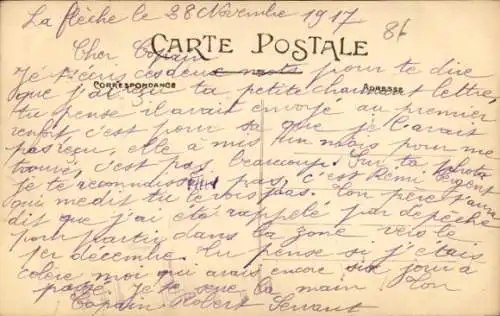 La flèche le 28 Novembre 1917
86
Cher Copain
CARTE POSTALE
Je t'écris ces deux mots pour te dire
CORRESPONDANCE
ADRESSE
que j'ai reçu ta petite charmant lettre,
tu pense il avait envoyé au premier
renfort c'est pour sa que je l'avait
pas reçu, elle à mis un mois pour me
trouvé, c'est pas beaucoup. Sur ta photo
je te reconnaissai pas, c'est Remi
qui me dit tu te vois pas. Ton père t'aura
dit que j'ai été rappelé par depêche
pour partir dans la zone vers le
1er decembre. Tu pense si j'étais
colère moi qui avais encore six jour à
passé. Je te serre la main Ton
Copain Robert Servant